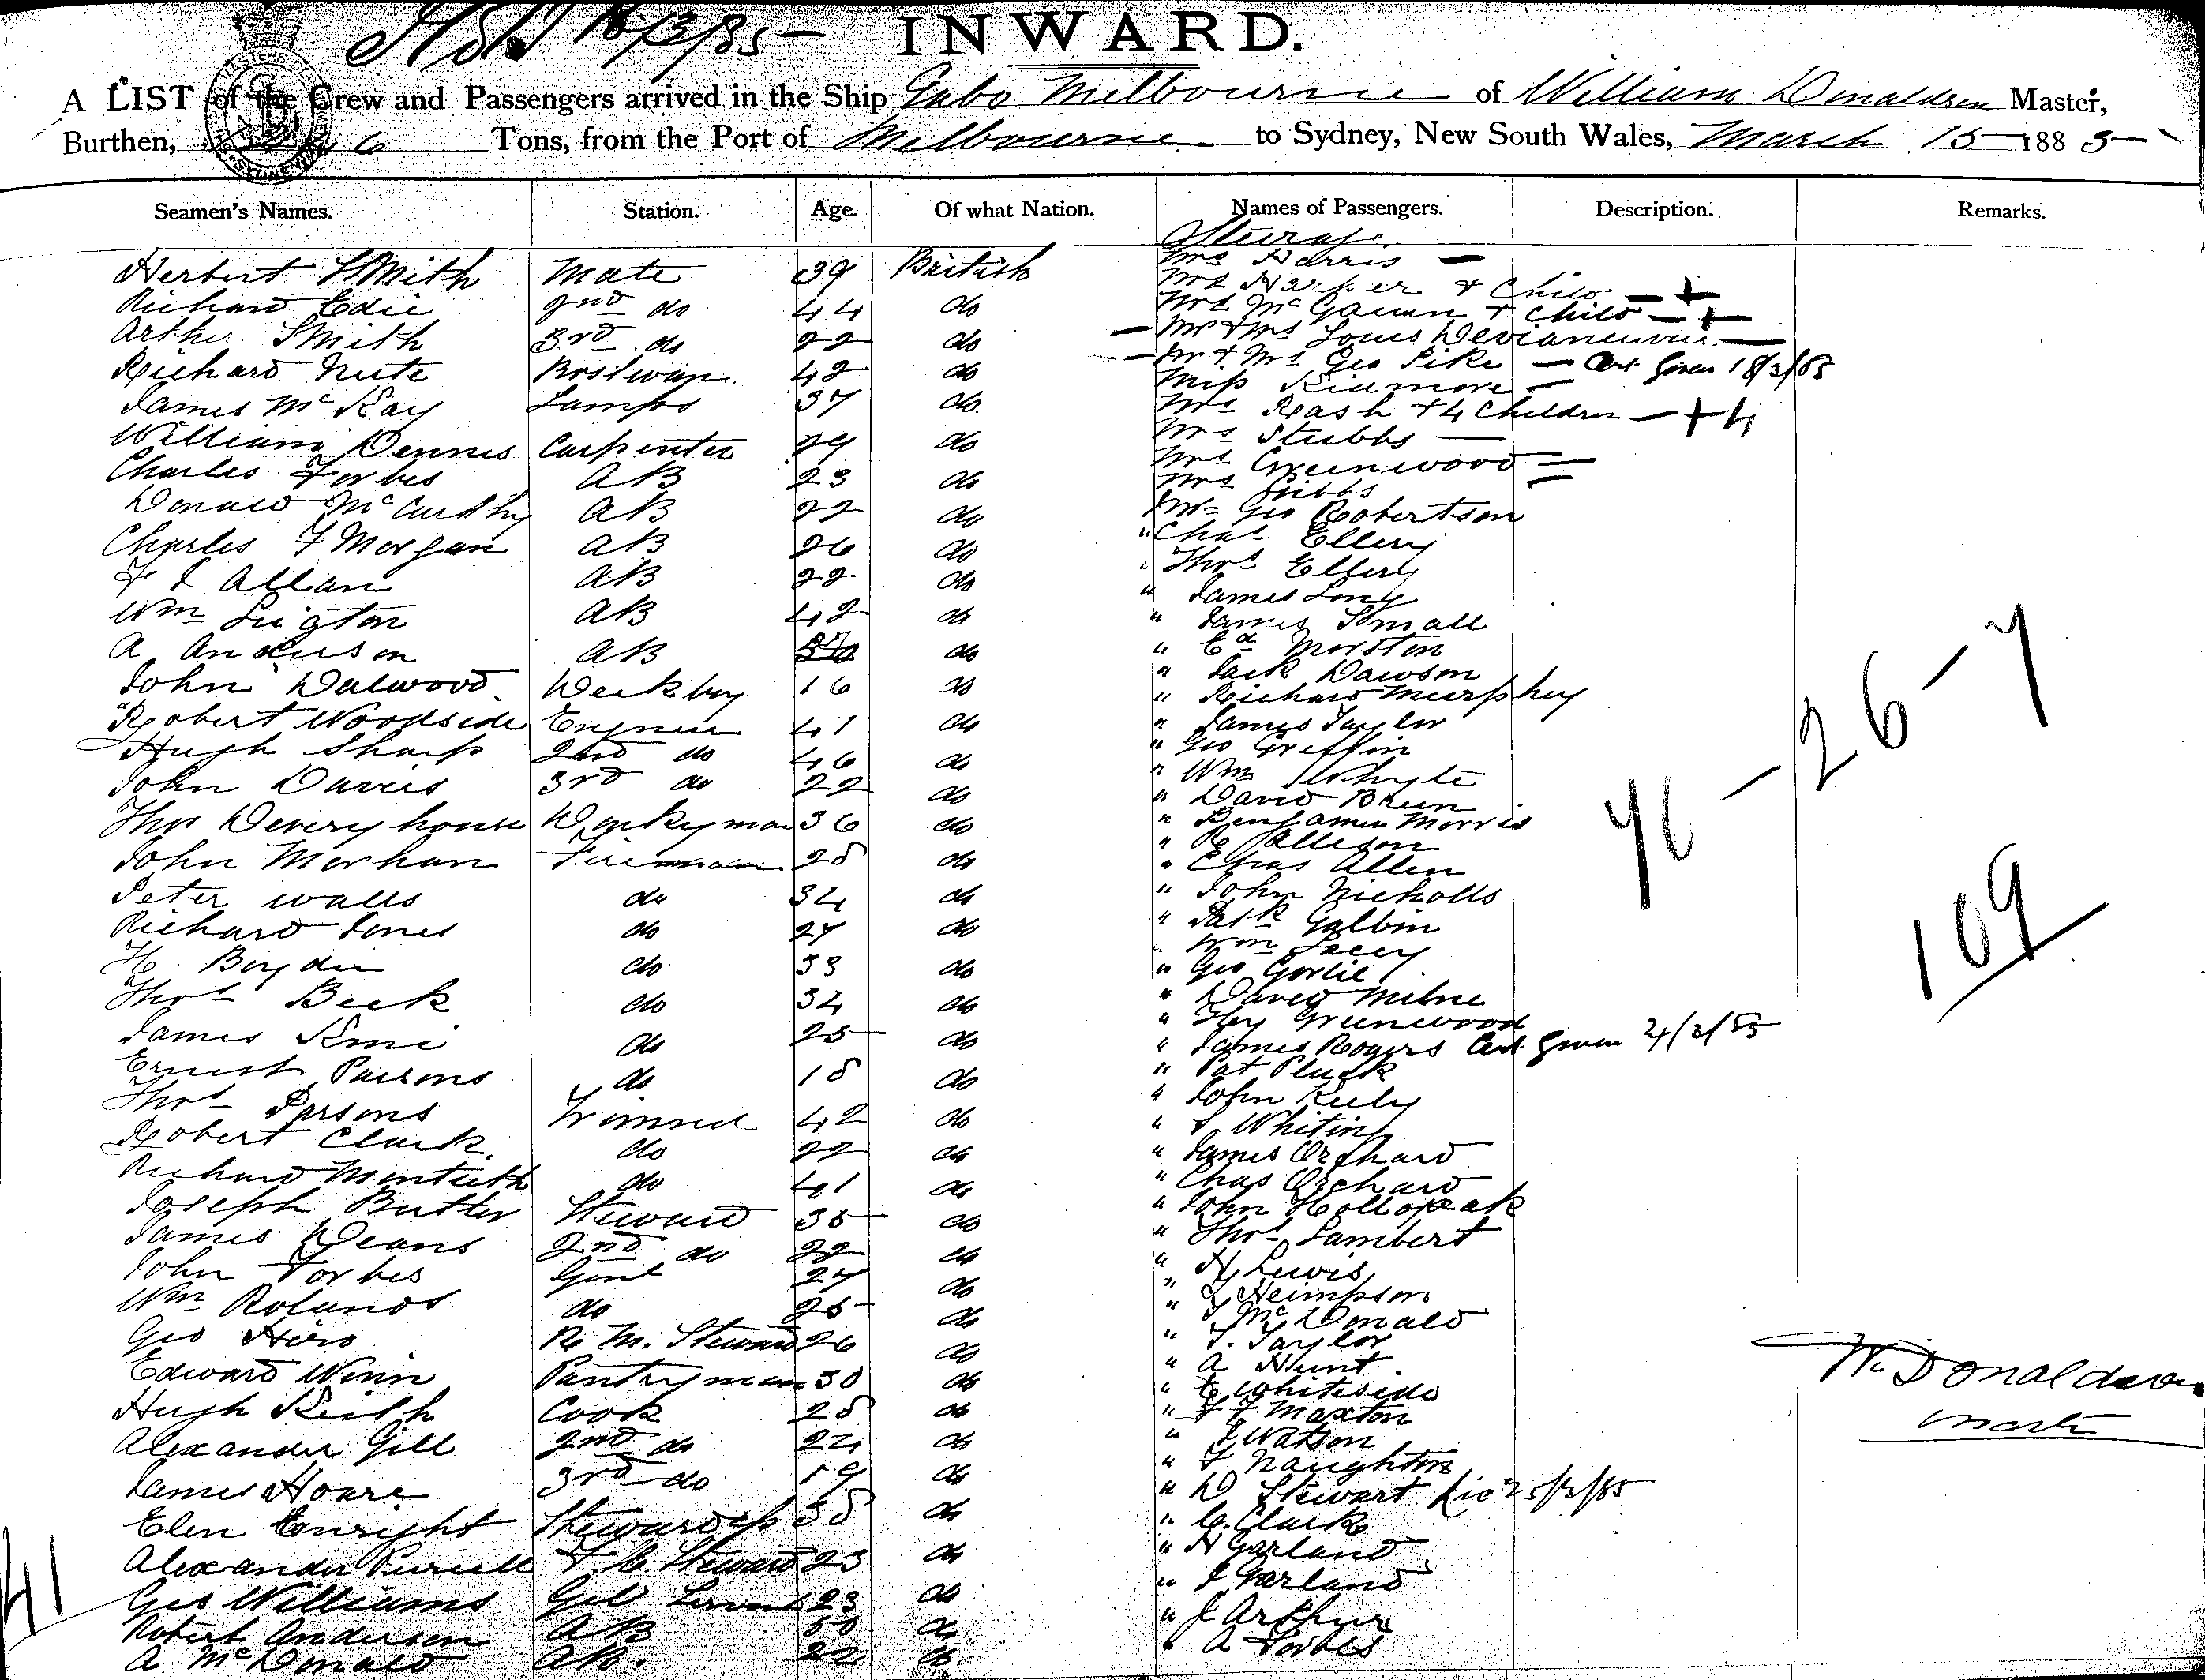 INWARD.
A LIST of the Crew and Passengers arrived in the Ship Gabo Melbourne of William Donaldson Master,
Burthen, Tons, from the Port of Melbourne to Sydney, New South Wales, March 15 1885
Seamen's Names. Station. Age. Of what Nation. Names of Passengers. Description. Remarks.
Steerage
Herbert Smith Mate 39 British Mrs Harris
Richard Edie 2nd do 44 do Mrs Harper & Child +
Arthur Smith 3rd do 22 do Mrs McGauran & Child +
Richard Nute Bostwan 42 do Mr & Mrs Louis
James McKay Lamps 37 do Mr & Mrs Geo Pike Cert Given 18/3/85
William Dennis Carpenter 29 do Miss
Charles Forbes AB 23 do Mrs Reash & 4 Children + 4
Donald McCarthy AB 22 do Mrs Stubbs
Charles F Morgan AB 26 do Mrs Greenwood
F J Allan AB 22 do Mrs Gibbs
Wm AB 42 do Mr Geo Robertson
A Anderson AB do " Chas Ellery
John Dalwood Deckboy 16 do " Thos Ellery
Robert Woodside Engineer 41 do " James Long
Hugh Sharp 2nd do 46 do " James Small
John Davies 3rd do 22 do " Ed Morston
Thos Deveryhouse Donkeyman 36 do " Jack Dawson
John Morhan Fireman 28 do " Richard Murphy
Peter Walls do 34 do " James Taylor
Richard Jones do 27 do " Geo Griffin
H Boyden do 33 do " Wm Whyte
Thos Beck do 34 do " David Breen
James do 25 do " Benjamin Morris
Ernest Parsons do 18 do " R Allison
Thos Parsons Trimmer 42 do " Chas Allen
Robert Clark do 22 do " John Nicholls
Richard Monteith do 41 do " Patk Galbin
Joseph Butler Steward 35 do " Wm Lacey
James Deans 2nd do 22 do " Geo Gorlie
John Forbes Genl 27 do " David Milne
Wm Rolands do 25 do " Hy Greenwood
Geo R. M. Steward 26 do " James Rogers Cert given 4/3/85
Edward Winn Pantryman 30 do " Pat Pluck
Hugh Keith Cook 28 do " John Kiely
Alexander Gill 2nd do 24 do " Whiting
James Hoare 3rd do 19 do " James Orchard
Elen Enright Stewardess 38 do " Chas Orchard
Alexander Purcell F C Steward 23 do " John Hollopeak
Geo Williams Gel 23 do " Thos Lambert
Robert Anderson AB 50 do " H Lewis
A McDonald AB. 22 do " Heimpson
" McDonald
" T. Taylor
" A Hunt
" E Whiteside
" F F Maxton
" J Watson
" F Naughton
" D Stewart 25/3/85
" C. Clark
" H Garland
" J Garland
" J Arthur
" A Forbes
41
46 - 26 - 7
109
Wm Donaldson
Master